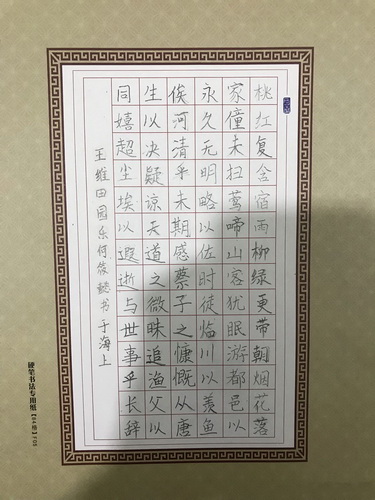 桃红复含宿雨柳绿更带朝烟花落
家僮未扫莺啼山客犹眠游都邑以
永久无明略以佐时徒临川以羡鱼
俟河清乎未期感蔡子之慷慨从唐
生以决疑谅天道之微昧追渔父以
同嬉超尘埃以遐逝与世事乎长辞
王维田园乐何筱懿书于海上
硬笔书法专用纸【84格】